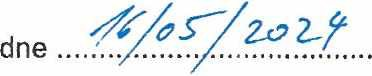 dne 16/05/2024